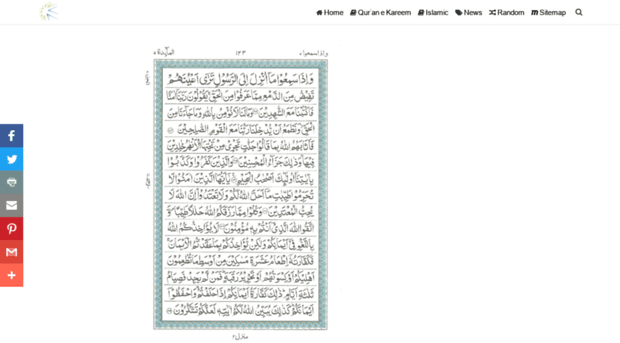 Home Qur'an e Kareem Islamic News Random Sitemap
واذا سمعوا
وَاِذَا سَمِعُوْا مَاۤ اُنْزِلَ اِلَى الرَّسُوْلِ تَرٰۤى اَعْيُنَهُمْ
تَفِيْضُ مِنَ الدَّمْعِ مِمَّا عَرَفُوْا مِنَ الْحَقِّ يَقُوْلُوْنَ رَبَّنَاۤ اٰمَنَّا
فَاكْتُبْنَا مَعَ الشّٰهِدِيْنَ وَمَا لَنَا لَا نُؤْمِنُ بِاللّٰهِ وَمَا جَآءَنَا مِنَ
الْحَقِّ وَنَطْمَعُ اَنْ يُّدْخِلَنَا رَبُّنَا مَعَ الْقَوْمِ الصّٰلِحِيْنَ
فَاَثَابَهُمُ اللّٰهُ بِمَا قَالُوْا جَنّٰتٍ تَجْرِيْ مِنْ تَحْتِهَا الْاَنْهٰرُ خٰلِدِيْنَ
فِيْهَا وَذٰلِكَ جَزَآءُ الْمُحْسِنِيْنَ وَالَّذِيْنَ كَفَرُوْا وَكَذَّبُوْا
بِاٰيٰتِنَاۤ اُولٰٓئِكَ اَصْحٰبُ الْجَحِيْمِ يٰۤاَيُّهَا الَّذِيْنَ اٰمَنُوْا لَا
تُحَرِّمُوْا طَيِّبٰتِ مَاۤ اَحَلَّ اللّٰهُ لَكُمْ وَلَا تَعْتَدُوْا اِنَّ اللّٰهَ لَا
يُحِبُّ الْمُعْتَدِيْنَ وَكُلُوْا مِمَّا رَزَقَكُمُ اللّٰهُ حَلٰلًا طَيِّبًا وَّ
اتَّقُوا اللّٰهَ الَّذِيْۤ اَنْتُمْ بِهٖ مُؤْمِنُوْنَ لَا يُؤَاخِذُكُمُ اللّٰهُ
بِاللَّغْوِ فِيْۤ اَيْمَانِكُمْ وَلٰكِنْ يُّؤَاخِذُكُمْ بِمَا عَقَّدْتُّمُ الْاَيْمَانَ
فَكَفَّارَتُهٗۤ اِطْعَامُ عَشَرَةِ مَسٰكِيْنَ مِنْ اَوْسَطِ مَا تُطْعِمُوْنَ
اَهْلِيْكُمْ اَوْ كِسْوَتُهُمْ اَوْ تَحْرِيْرُ رَقَبَةٍ فَمَنْ لَّمْ يَجِدْ فَصِيَامُ
ثَلٰثَةِ اَيَّامٍ ذٰلِكَ كَفَّارَةُ اَيْمَانِكُمْ اِذَا حَلَفْتُمْ وَاحْفَظُوْۤا
اَيْمَانَكُمْ كَذٰلِكَ يُبَيِّنُ اللّٰهُ لَكُمْ اٰيٰتِهٖ لَعَلَّكُمْ تَشْكُرُوْنَ